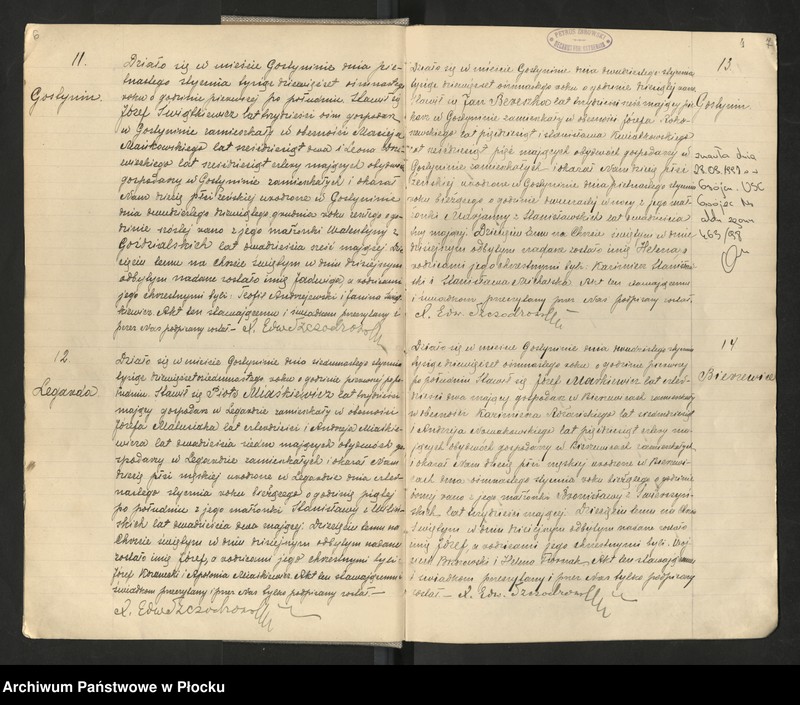 6
11.
Gostynin.
Działo się w mieście Gostyninie dnia pię-
tnastego stycznia tysiąc dziewięćset ośmnastego
roku o godzinie pierwszej po południu. Stawił się
Józef Świątkiewicz lat trzydzieści ośm gospodarz
w Gostyninie zamieszkały w obecności Macieja
Mańkowskiego lat sześćdziesiąt dwa i Leona
lat sześćdziesiąt cztery mających obydwóch
gospodarzy w Gostyninie zamieszkałych i okazał
Nam dziecię płci żeńskiej urodzone w Gostyninie
dnia dwudziestego dziewiątego grudnia roku zeszłego o go-
dzinie szóstej rano z jego małżonki Walentyny z
Goździalskich lat dwadzieścia sześć mającej Dzie-
cięciu temu na Chrzcie świętym w dniu dzisiejszym
odbytym nadane zostało imię Jadwiga, a rodzicami
jego chrzestnymi byli: Teofil Andrzejewski i Janina Świąt-
kiewicz. Akt ten stawającemu i świadkom przeczytany i
przez Nas podpisany został.—
X. Edw. Szczodrowski
12
Leganda.
Działo się w mieście Gostyninie dnia siedemnastego stycznia
tysiąc dziewięćset ośmnastego roku o godzinie pierwszej popo-
łudniu. Stawił się Piotr Miaśkiewicz lat trzydzieści
mający gospodarz w Legandzie zamieszkały w obecności
Józefa Matusiaka lat czterdzieści i Andrzeja Miaśkie-
wicza lat dwadzieścia siedm mających obydwóch go-
spodarzy w Legandzie zamieszkałych i okazał Nam
dziecię płci męskiej urodzone w Legandzie dnia czter-
nastego stycznia roku bieżącego o godzinie piątej
po południu z jego małżonki Stanisławy z
lat dwadzieścia dwa mającej. Dziecięciu temu na
Chrzcie świętym w dniu dzisiejszym odbytym nadane
zostało imię Józef, a rodzicami jego chrzestnymi byli:
Józef i Apolonia Miaśkiewicz. Akt ten stawającemu i
świadkom przeczytany i przez Nas tylko podpisany został.—
X. Edw. Szczodrowski
7
13
Gostynin.
zmarła dnia
28.08.1991 r.
USC
akt zgonu
463/89
Działo się w mieście Gostyninie dnia dwudziestego stycznia
tysiąc dziewięćset ośmnastego roku o godzinie dziesiątej rano
Stawił się Jan Berezka lat trzydzieści mający pie-
karz w Gostyninie zamieszkały w obecności Józefa Koko-
szewskiego lat pięćdziesiąt i Stanisława Kwiatkowskiego
lat sześćdziesiąt pięć mających obydwóch gospodarzy w
Gostyninie zamieszkałych i okazał Nam dziecię płci
żeńskiej urodzone w Gostyninie dnia piętnastego stycznia
roku bieżącego o godzinie dwunastej w nocy z jego mał-
żonki Marjanny z Stanisławskich lat dwadzieścia
mającej. Dziecięciu temu na Chrzcie świętym w dniu
dzisiejszym odbytym nadane zostało imię Helena, a
rodzicami jego chrzestnymi byli: Kazimierz Stanisław-
ski i Stanisława Michalska. Akt ten stawającemu
i świadkom przeczytany przez Nas podpisany został.
X. Edw. Szczodrowski
14
Bierzewice
Działo się w mieście Gostyninie dnia dwudziestego stycznia
tysiąc dziewięćset ośmnastego roku o godzinie pierwszej
po południu Stawił się Józef Maćkiewicz lat czter-
dzieści dwa mający gospodarz w Bierzewicach zamieszkały
w obecności Kazimierza lat siedmdziesiąt
i Andrzeja Nowakowskiego lat pięćdziesiąt cztery ma-
jących obydwóch gospodarzy w Bierzewicach zamieszkałych
i okazał Nam dziecię płci męskiej urodzone w Bierzewi-
cach dnia ośmnastego stycznia roku bieżącego o godzinie
ósmej rano z jego małżonki Bronisławy z
lat trzydzieści mającej. Dziecięciu temu na Chrzcie
świętym w dniu dzisiejszym odbytym nadane zostało
imię Józef, a rodzicami jego chrzestnymi byli: Woj-
ciech i Helena. Akt ten stawającemu
i świadkom przeczytany i przez Nas tylko podpisany
został.— X. Edw. Szczodrowski
Archiwum Państwowe w Płocku